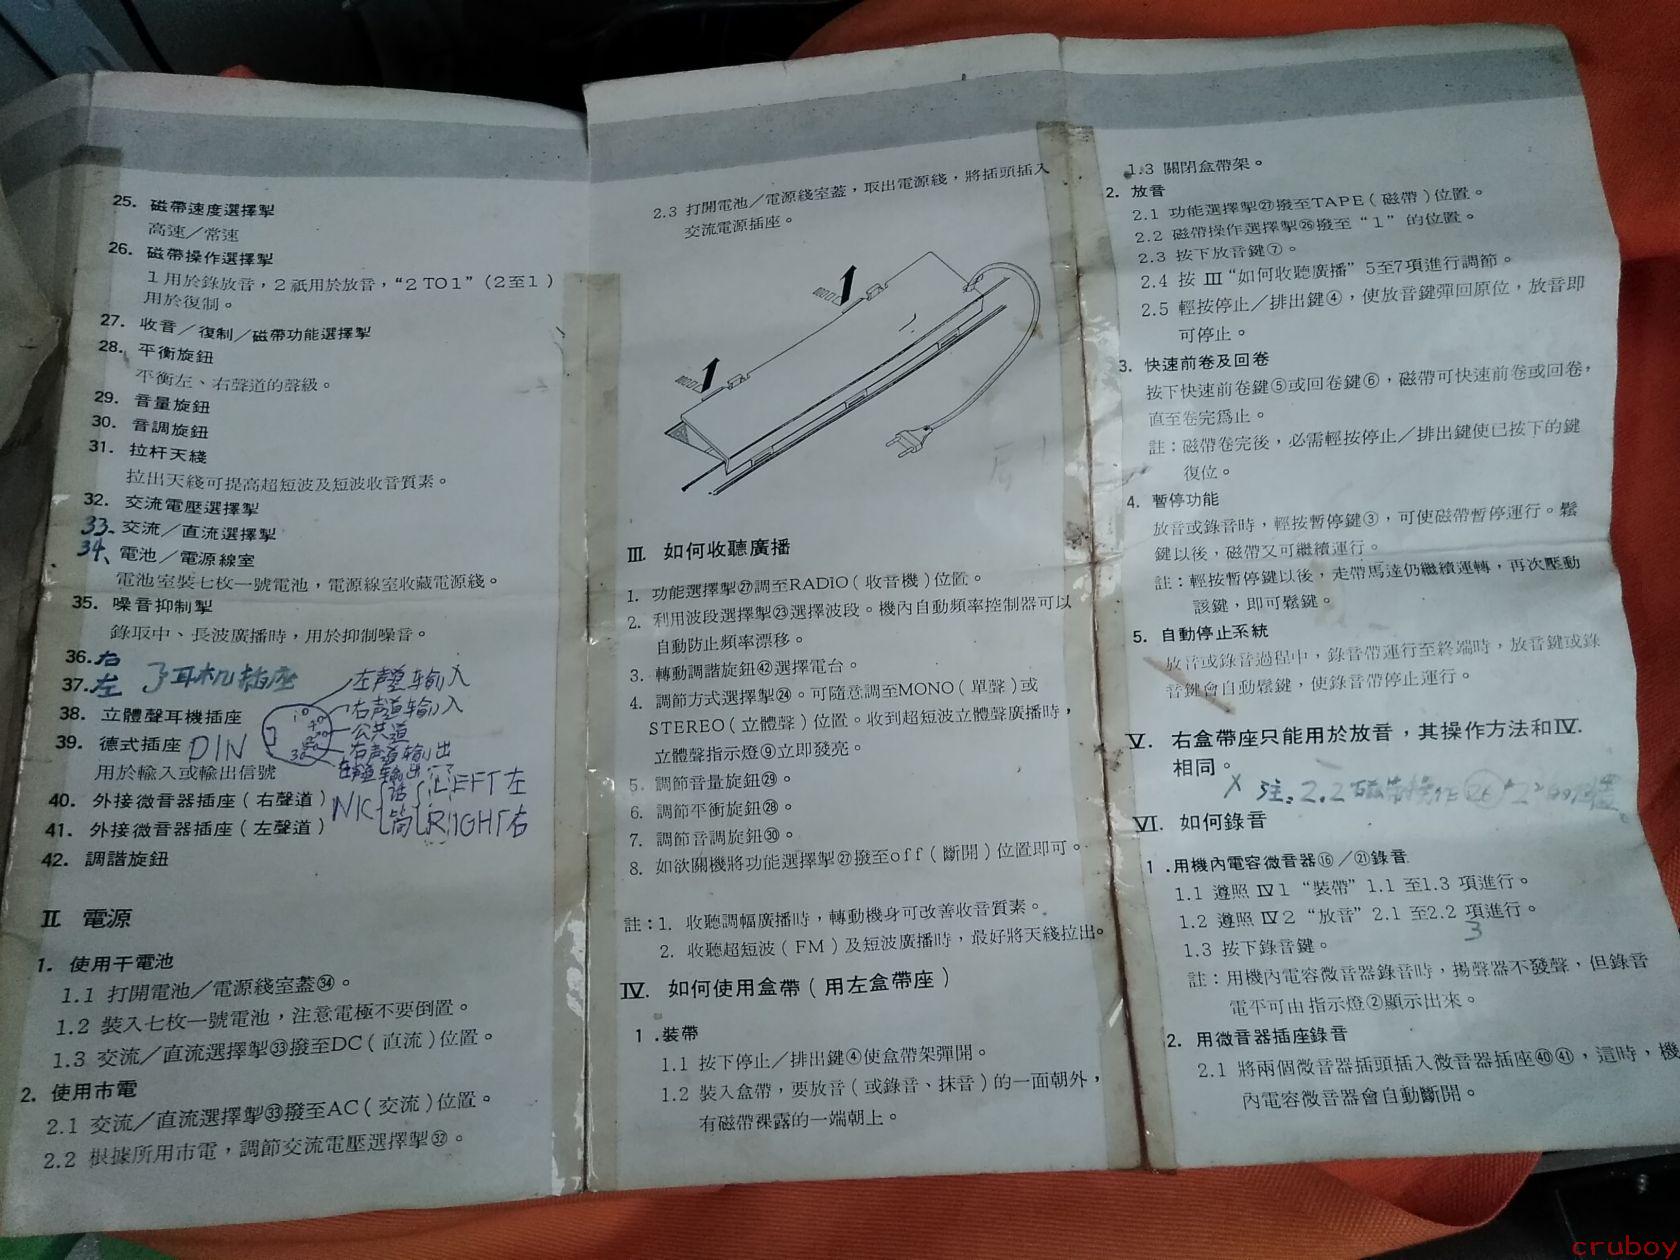 25. 磁帶速度選擇掣
高速／常速
26. 磁帶操作選擇掣
1用於錄放音，2祇用於放音，“2 TO 1”（2至1）
用於復制。
27. 收音／復制／磁帶功能選擇掣
28. 平衡旋鈕
平衡左、右聲道的聲級。
29. 音量旋鈕
30. 音調旋鈕
31. 拉杆天綫
拉出天綫可提高超短波及短波收音質素。
32. 交流電壓選擇掣
33、交流／直流選擇掣
34、電池／電源線室
電池室裝七枚一號電池，電源線室收藏電源綫。
35. 噪音抑制掣
錄取中、長波廣播時，用於抑制噪音。
36. 右
37. 左 耳机插座
38. 立體聲耳機插座
39. 德式插座 DIN
用於輸入或輸出信號
左声道输入
右声道输入
公共道
右声道输出
左声道输出
40. 外接微音器插座（右聲道）
41. 外接微音器插座（左聲道）
话筒
LEFT左
RIGHT右
42. 調諧旋鈕
Ⅱ 電源
1. 使用干電池
1.1 打開電池／電源綫室蓋㉞。
1.2 裝入七枚一號電池，注意電極不要倒置。
1.3 交流／直流選擇掣㉝撥至DC（直流）位置。
2. 使用市電
2.1 交流／直流選擇掣㉝撥至AC（交流）位置。
2.2 根據所用市電，調節交流電壓選擇掣㉜。
2.3 打開電池／電源綫室蓋，取出電源綫，將插頭插入
交流電源插座。
Ⅲ. 如何收聽廣播
1. 功能選擇掣㉗調至RADIO（收音機）位置。
2. 利用波段選擇掣㉓選擇波段。機內自動頻率控制器可以
自動防止頻率漂移。
3. 轉動調諧旋鈕㊷選擇電台。
4. 調節方式選擇掣㉔。可隨意調至MONO（單聲）或
STEREO（立體聲）位置。收到超短波立體聲廣播時，
立體聲指示燈⑨立即發亮。
5. 調節音量旋鈕㉙。
6. 調節平衡旋鈕㉘。
7. 調節音調旋鈕㉚。
8. 如欲關機將功能選擇掣㉗撥至off（斷開）位置即可。
註：1. 收聽調幅廣播時，轉動機身可改善收音質素。
2. 收聽超短波（FM）及短波廣播時，最好將天綫拉出。
Ⅳ. 如何使用盒帶（用左盒帶座）
1.裝帶
1.1 按下停止／排出鍵④使盒帶架彈開。
1.2 裝入盒帶，要放音（或錄音、抹音）的一面朝外，
有磁帶裸露的一端朝上。
1.3 關閉盒帶架。
2. 放音
2.1 功能選擇掣㉗撥至TAPE（磁帶）位置。
2.2 磁帶操作選擇掣㉖撥至“1”的位置。
2.3 按下放音鍵⑦。
2.4 按Ⅲ“如何收聽廣播”5至7項進行調節。
2.5 輕按停止／排出鍵④，使放音鍵彈回原位，放音即
可停止。
3. 快速前卷及回卷
按下快速前卷鍵⑤或回卷鍵⑥，磁帶可快速前卷或回卷，
直至卷完爲止。
註：磁帶卷完後，必需輕按停止／排出鍵使已按下的鍵
復位。
4. 暫停功能
放音或錄音時，輕按暫停鍵③，可使磁帶暫停運行。鬆
鍵以後，磁帶又可繼續運行。
註：輕按暫停鍵以後，走帶馬達仍繼續運轉，再次壓動
該鍵，即可鬆鍵。
5. 自動停止系統
放音或錄音過程中，錄音帶運行至終端時，放音鍵或錄
音鍵會自動鬆鍵，使錄音帶停止運行。
Ⅴ. 右盒帶座只能用於放音，其操作方法和Ⅳ.
相同。
X 注：2.2磁带操作㉖“2”的位置
Ⅵ. 如何錄音
1.用機內電容微音器⑯／㉑錄音
1.1 遵照Ⅳ1“裝帶”1.1至1.3項進行。
1.2 遵照Ⅳ2“放音”2.1至2.2項進行。
3
1.3 按下錄音鍵。
註：用機內電容微音器錄音時，揚聲器不發聲，但錄音
電平可由指示燈②顯示出來。
2. 用微音器插座錄音
2.1 將兩個微音器插頭插入微音器插座㊵㊶，這時，機
內電容微音器會自動斷開。
cruboy